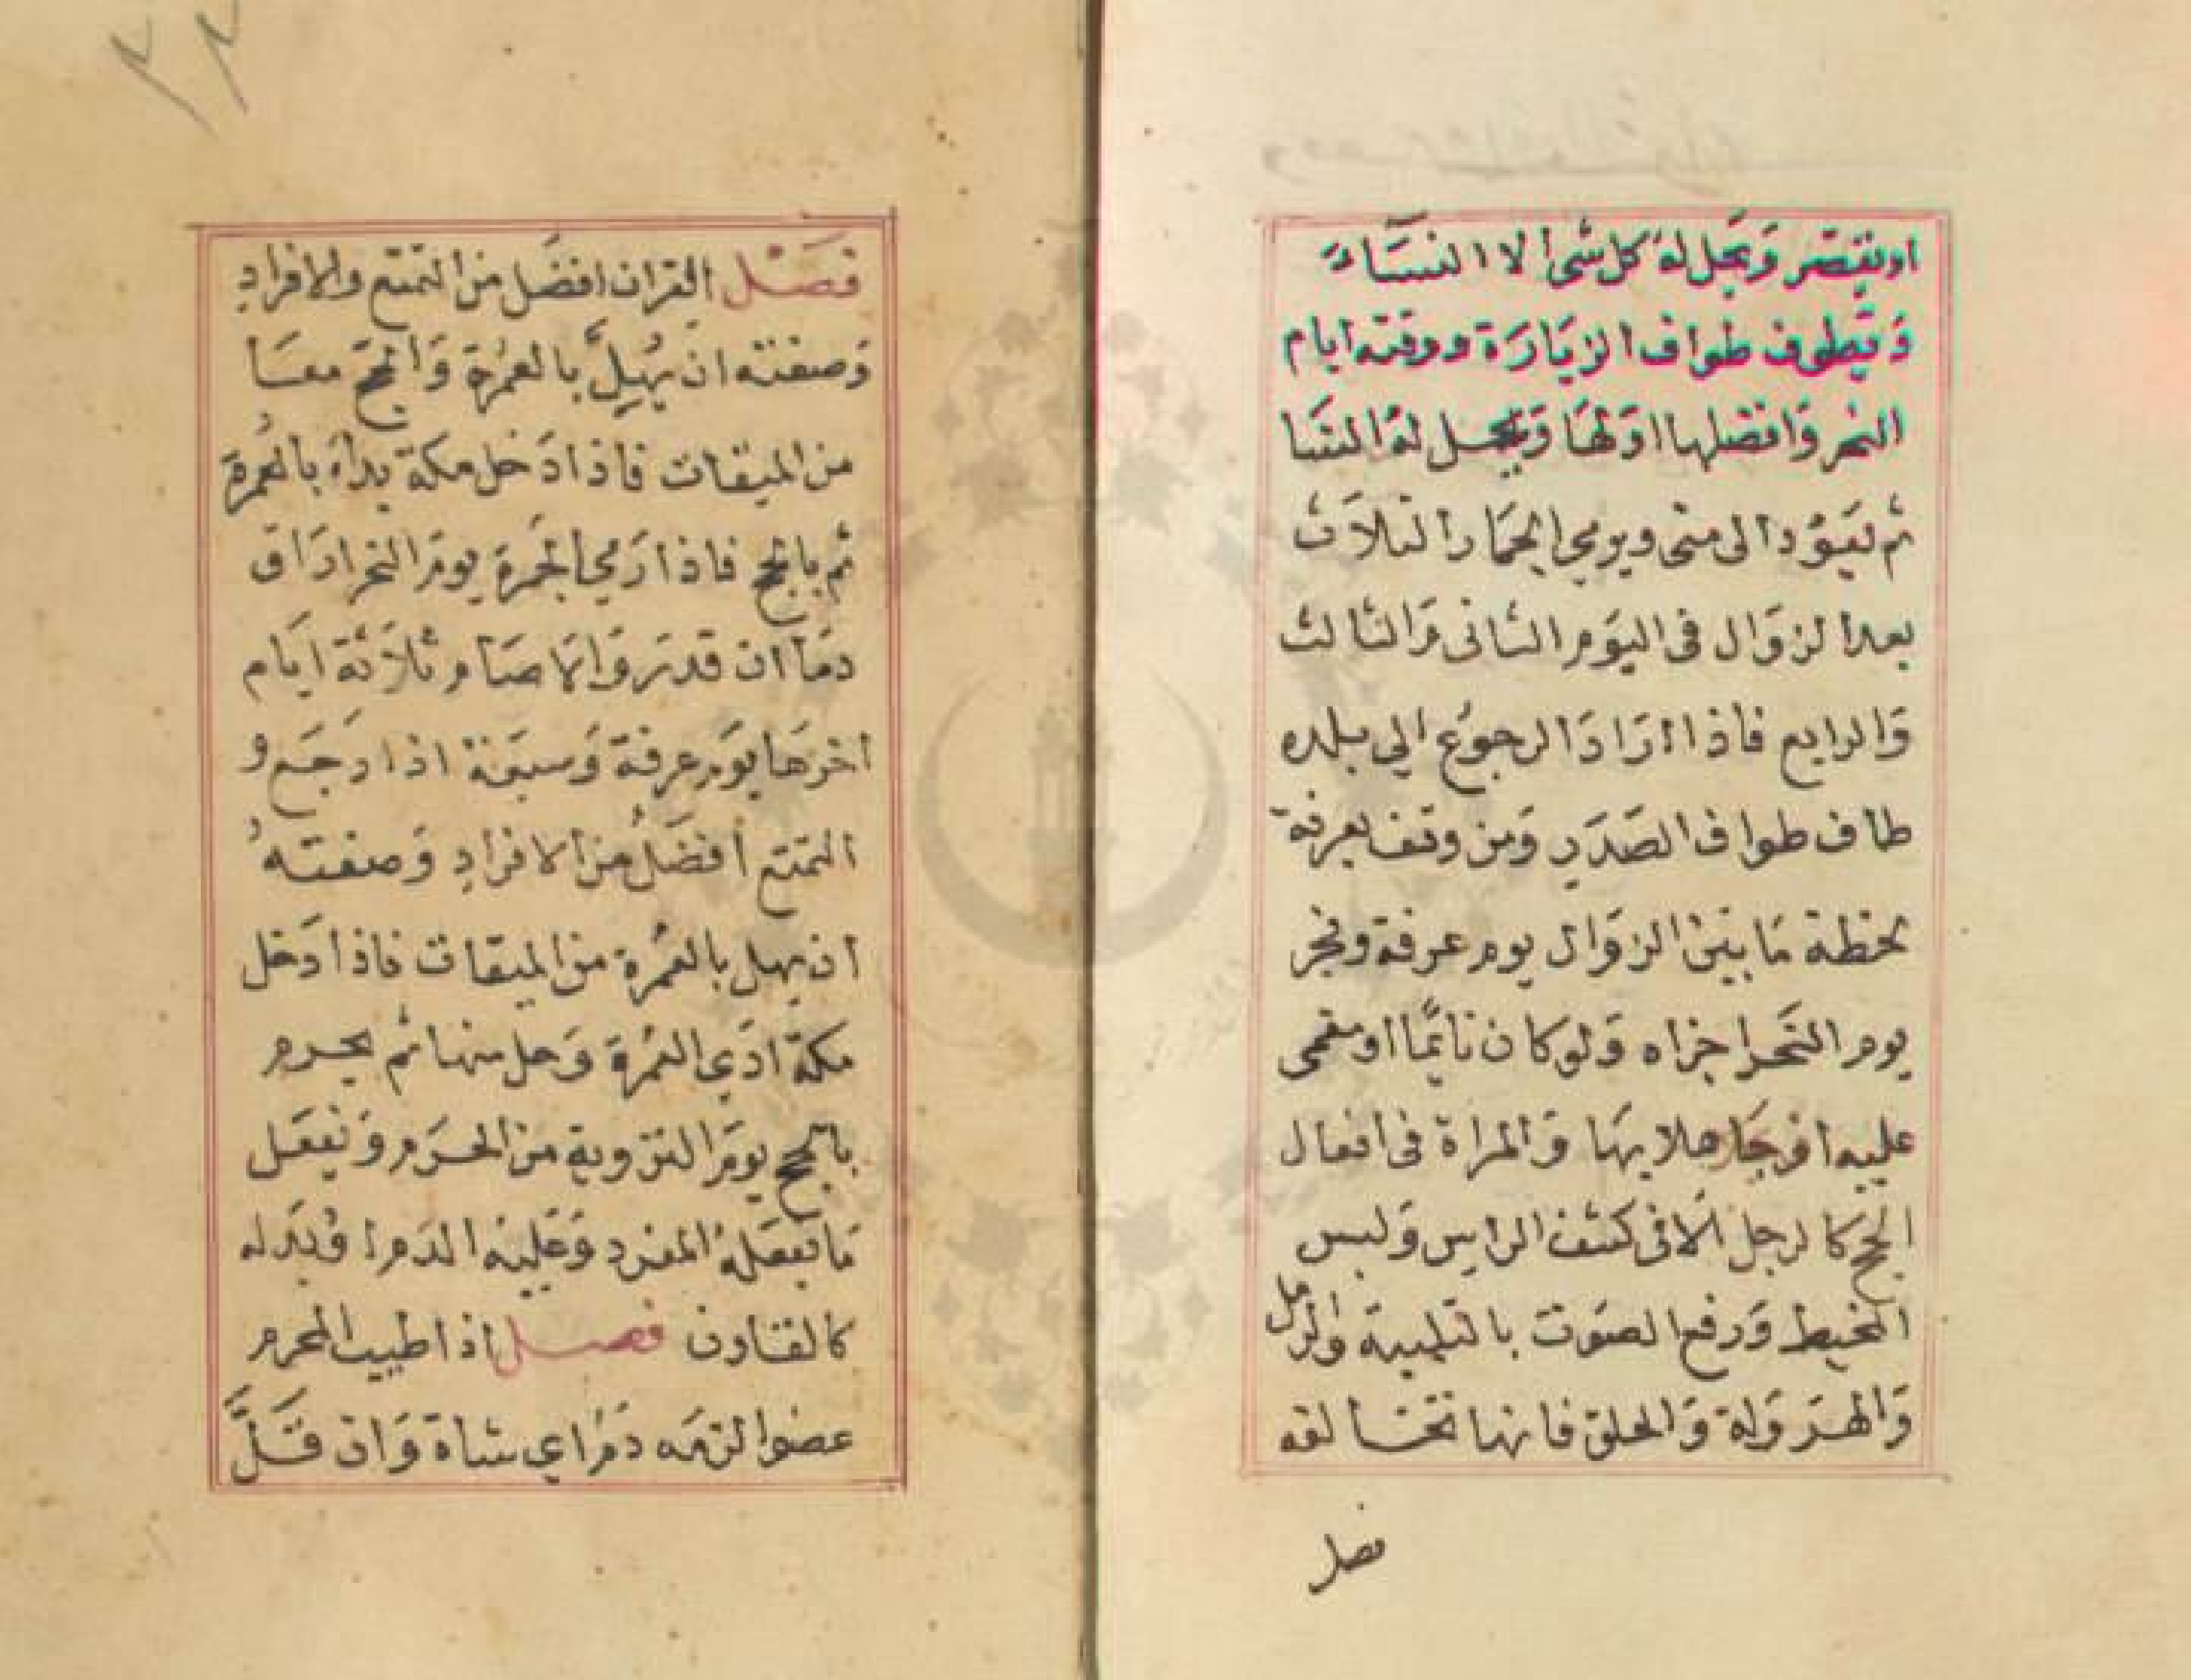 او يقصر وَيحل لهُ كل شئ الا النسَاءَ
وَيطوف طواف الزيَارَة ووقته ايام
النحر وَافضلها اوّلهَا وَيحل لهُ النسَا
ثم يَعوُد الى منى ويرمي الجمَار الثلاَث
بعد الزوَال فى اليَوم الثانى وَالثالث
وَالرابع فاذا ارَادَ الرجوُع الي بلده
طاف طواف الصَدَرِ وَمن وقف بعرفة
لحظة مَا بيَن الزوَال يوم عرفة وفجر
يوم النَحر اجزاه وَلو كان نائمًا او مغمى
عليه اوجَاهلا بهَا وَالمراة فى افعال
الحج كالرجل الّا فى كشف الراسِ وَلبس
المخيط وَرفع الصَوت بالتلبية وَالرمل
وَالهروَلة وَالحلق فانها تخالفه
فصل
٢٢
فصَل القران افضَل من التمتع والافرادِ
وَصفته ان يُهِلَّ بالعُمرَة وَالحج معَا
من الميقات فاذا دَخل مكة بدأ بالعُمرة
ثم بالحج فاذا رَمي الجمرَة يومَ النحر ارَاق
دمَا ان قدرَ وَالا صَام ثلاَثة ايَام
اخرهَا يوَم عرفة وَسبعَة اذا رجَع و
التمتع افضَلُ من الافرادِ وَصفتهُ
ان يهل بالعُمرة من الميقات فاذا دَخل
مكة ادَي العُمرَة وَحل منها ثم يحرم
بالحج يومَ التروية من الحرَم وَيفعَل
مَا يفعَلهُ المفرد وَعَليه الدَم او بَدله
كالقارن فصل اذا طيب المحرم
عضوا لزمَه دَم اي شاة وَان قَلَّ